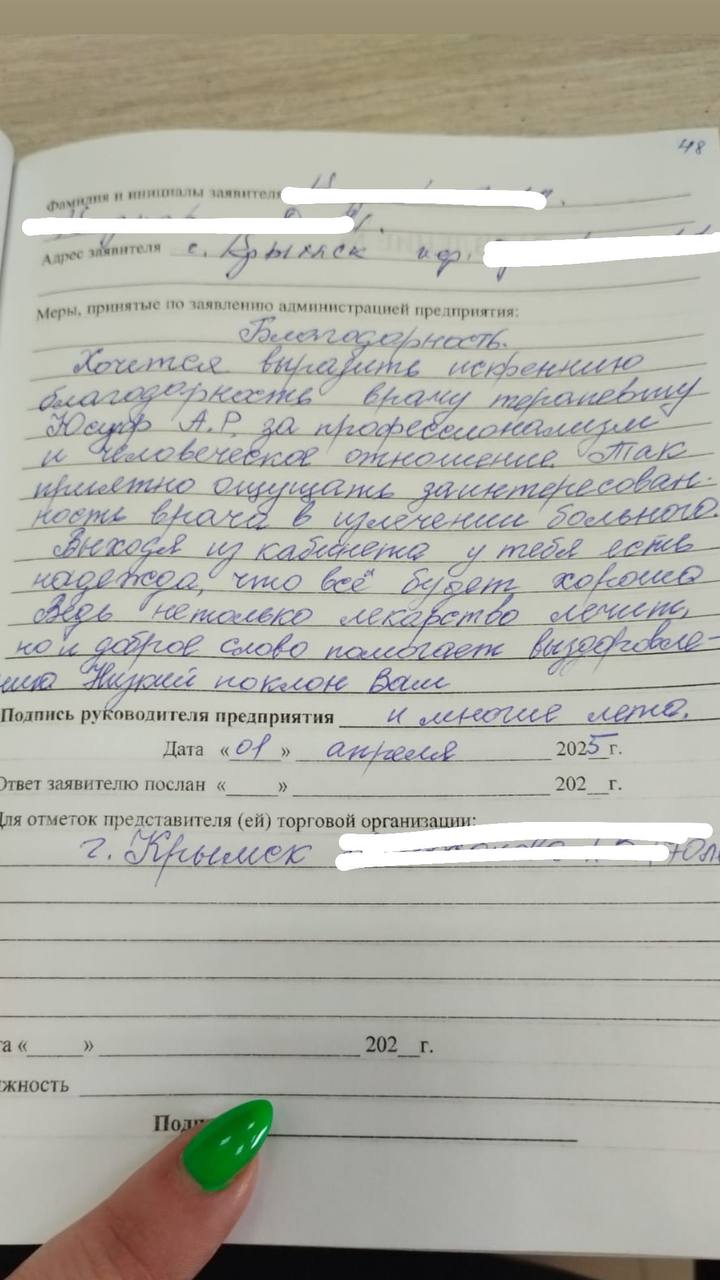 48
Фамилия и инициалы заявителя
Адрес заявителя г. Крымск
Меры, принятые по заявлению администрацией предприятия:
Благодарность.
Хочется выразить искреннюю
благодарность врачу терапевту
Юсуф А.Р. за профессионализм
и человеческое отношение. Так
приятно ощущать заинтересован-
ность врача в излечении больного.
Выходя из кабинета у тебя есть
надежда, что всё будет хорошо
Ведь нетолько лекарство лечит,
но и доброе слово помогает выздоровле-
нию Низкий поклон Вам
Подпись руководителя предприятия и многие лета.
Дата «01» апреля 2025 г.
Ответ заявителю послан «____» ____ 202__г.
Для отметок представителя (ей) торговой организации:
г. Крымск
та «____» ____ 202__г.
жность